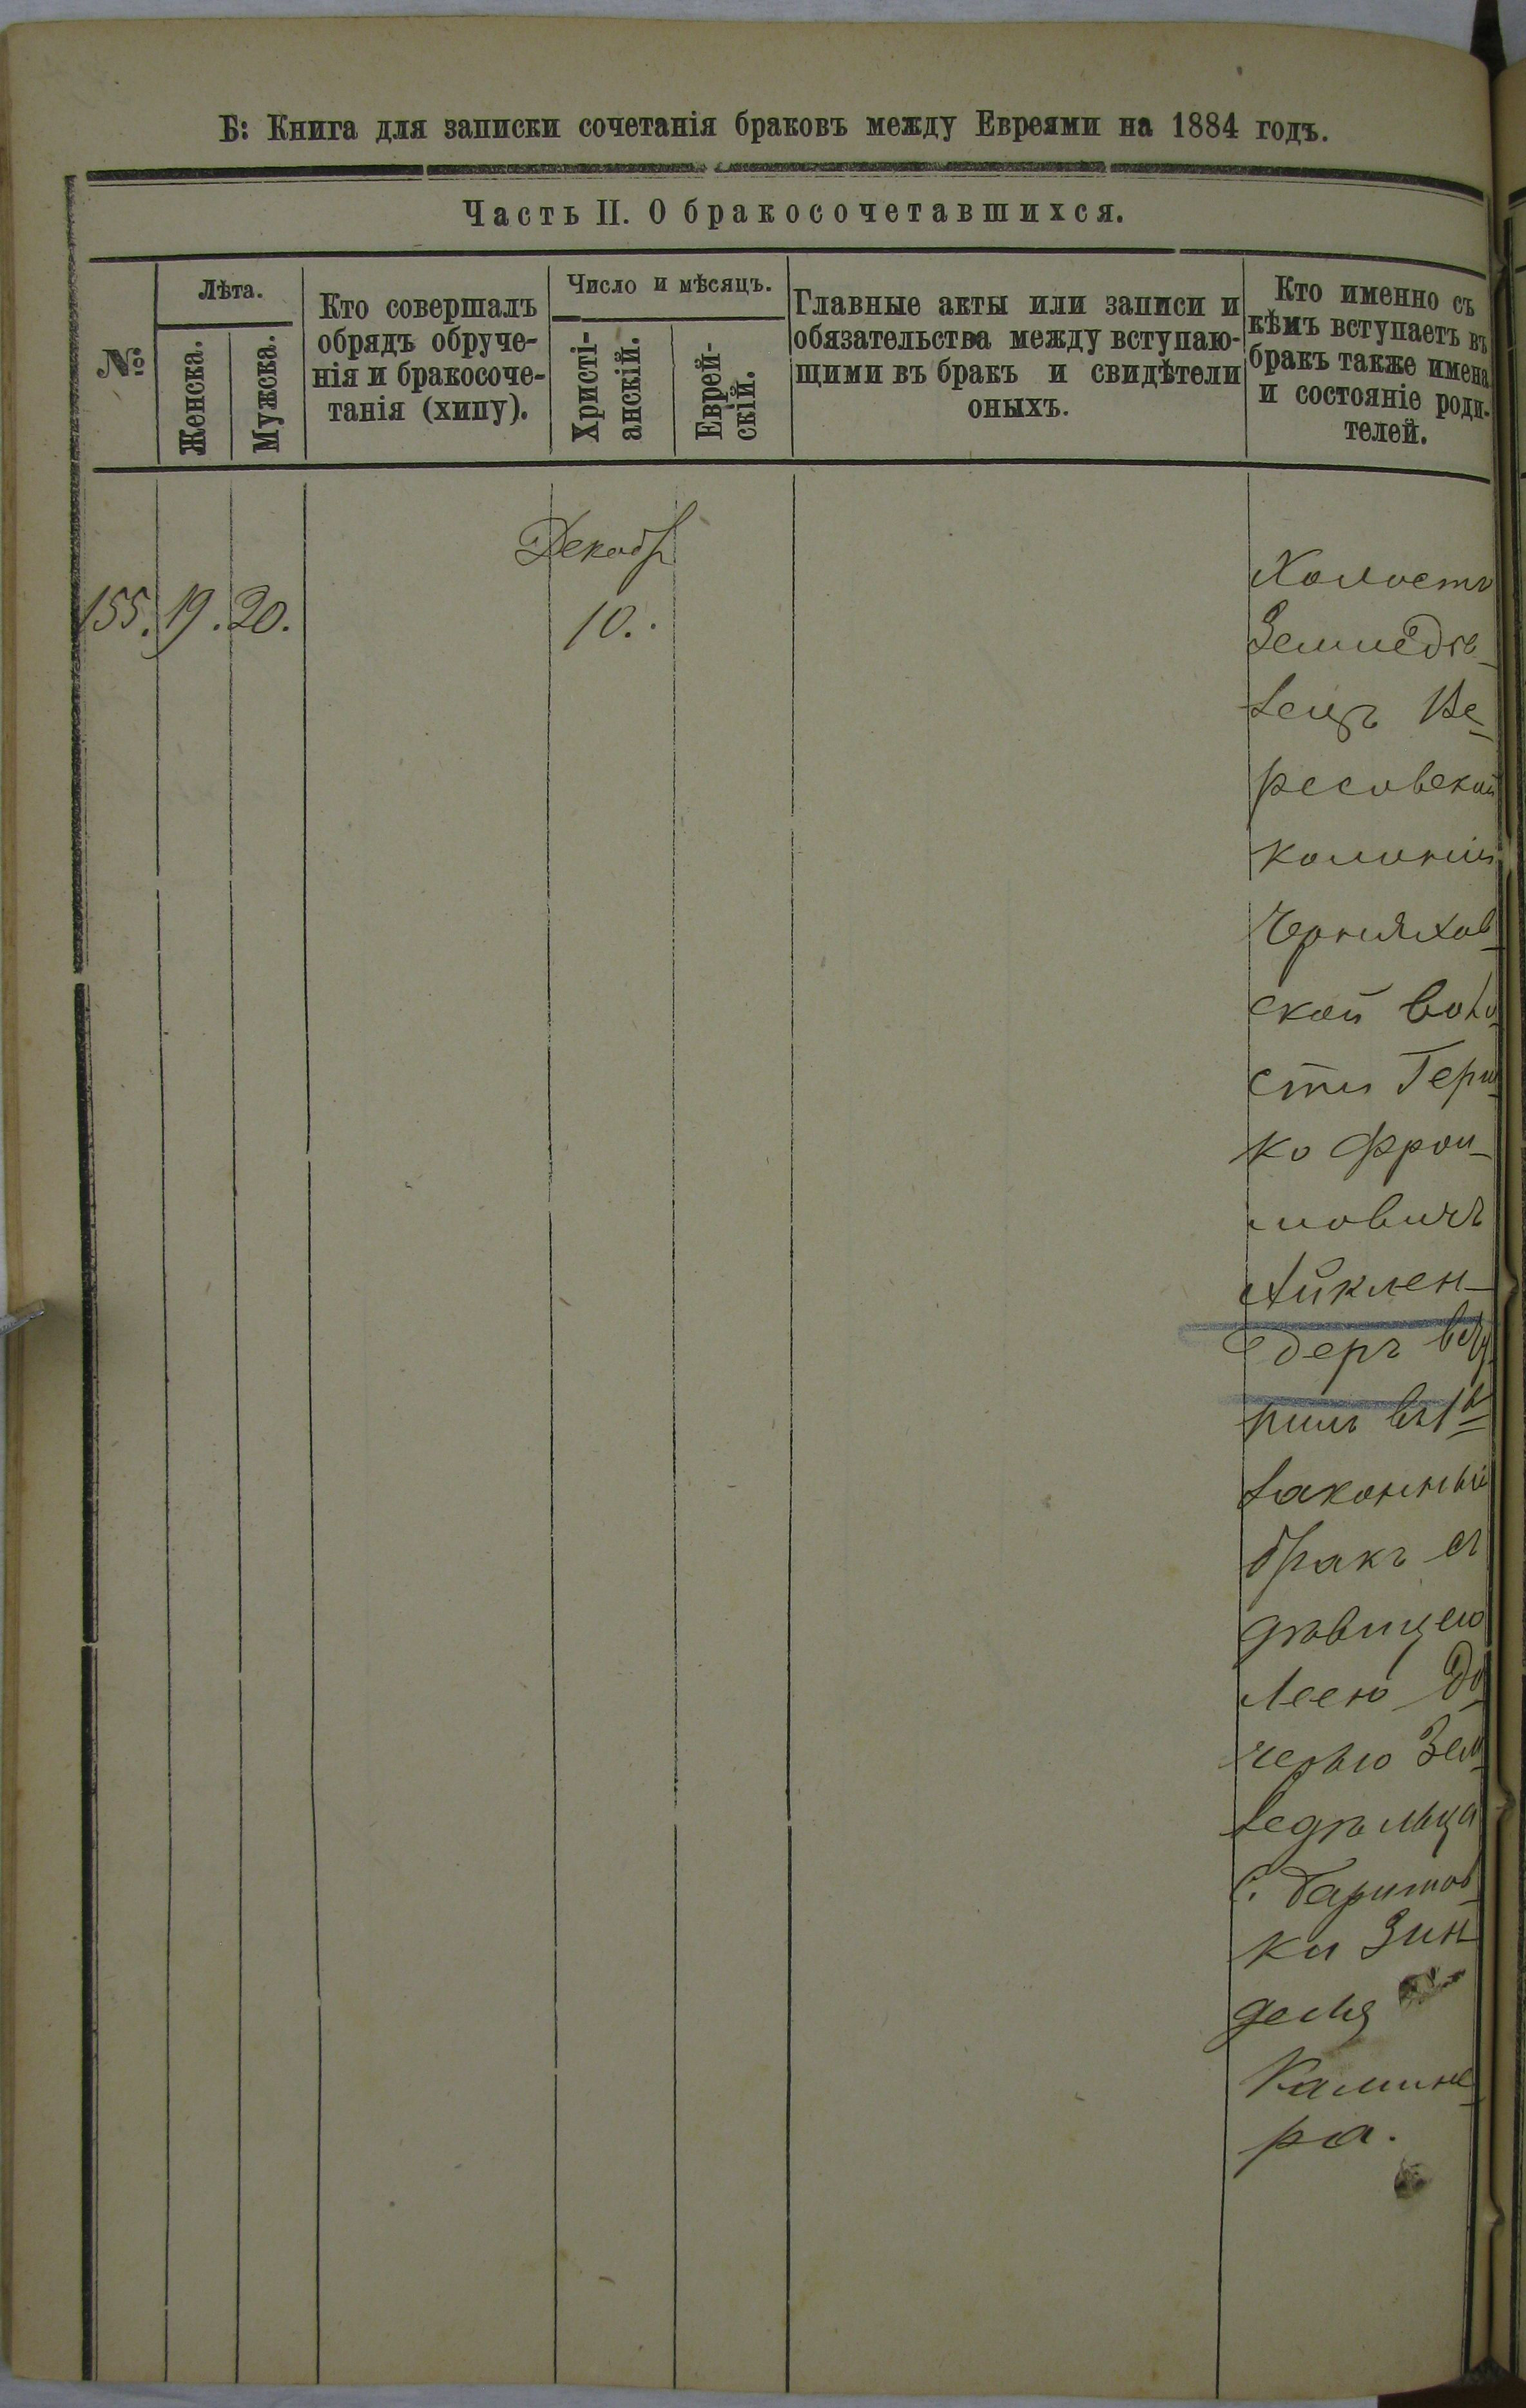 Б: Книга для записки сочетанія браковъ между Евреями на 1884 годъ.
Часть II. О бракосочетавшихся.
№
Лѣта.
Женска.
Мужска.
Кто совершалъ
обрядъ обруче-
нія и бракосоче-
танія (хипу).
Число и мѣсяцъ.
Христі-
анскій.
Еврей-
скій.
Главные акты или записи и
обязательства между вступаю-
щими въ бракъ и свидѣтели
оныхъ.
Кто именно съ
кѣмъ вступаетъ въ
бракъ также имена
и состояніе роди-
телей.
Декабр
155. 19. 20.
10.
Холостъ
Земледѣ-
лецъ Ве-
ресовской
колоніи
Черняхов-
ской воло-
сти Герш-
ко Фрои-
мовичъ
Айклен-
деръ
въ 1й
законный
бракъ съ
дѣвицею
Леею до-
черью Зем-
ледѣльца
с.
ки Зин-
деля
Камине-
ра.